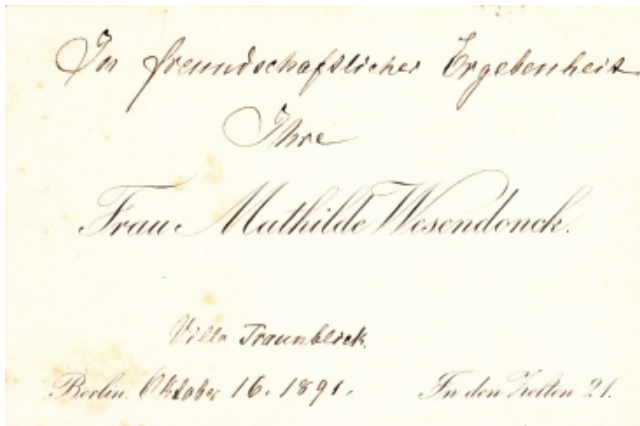 In freundschaftlicher Ergebenheit
Ihre
Frau Mathilde Wesendonck.
Villa Traunblick.
Berlin. Oktober 16. 1891. In den Zelten 21.